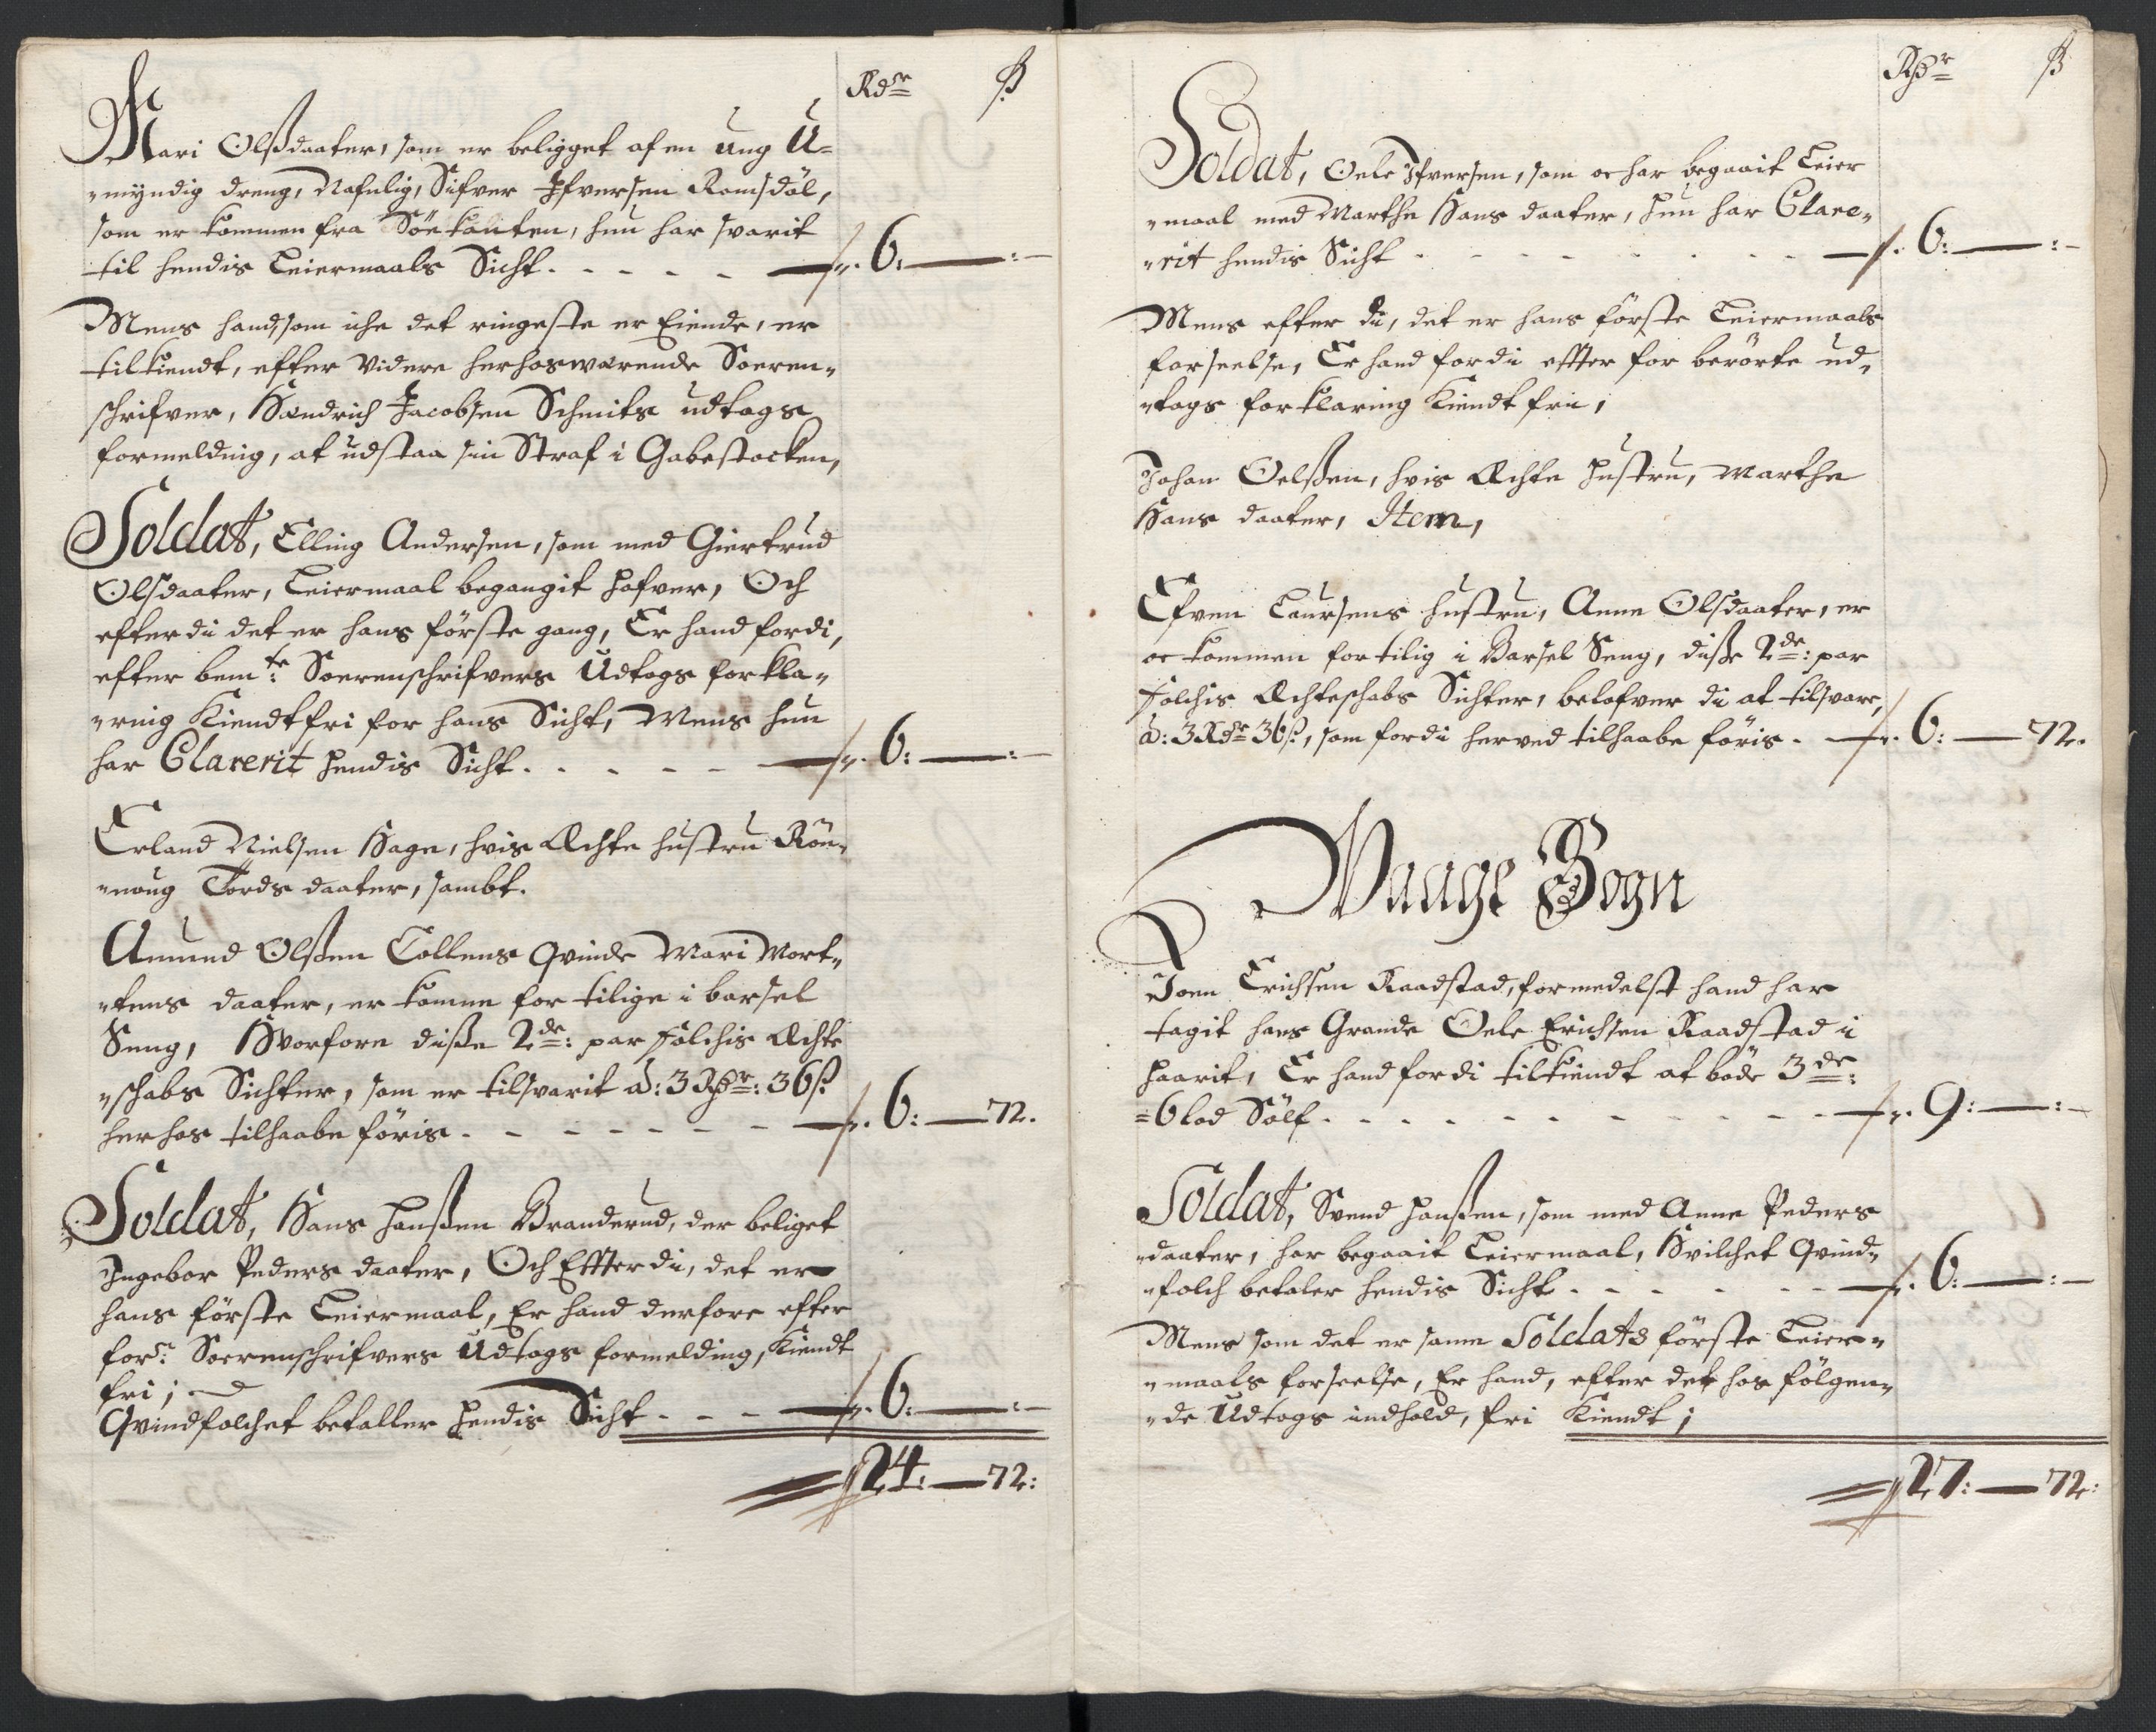 Rdr ß
Mari Olßdaater, som er beligget af en ung U-
„myndig dreng, Nafnlig, Sifver Ifversen Romsdöl,
som er kommen fra Söekanten, hun har svarit
til hendis Leiermaals Sicht. - - - - 6: — : —
Mens hand, som iche det ringeste er Eiende, er
tilkiendt, efter videre herhosværende Soeren„
schrifver, Hendrich Jacobsen Schmits udtogs
formelding, at udstaa sin Straf i Gabestocken,
Soldat, Elling Andersen, som med Giertrud
Olsdaater, Leiermaal begangit hafver, Och
efterdi det er hans förste gang, Er hand fordi,
efter bemte: Soerenschrifvers Udtogs forkla„
„ring Kiendt fri for hans Sicht, Mens hun
har Clarerit hendis Sicht. - - - - 6: — : —
Erland Nielsen Hage, hvis Ächte hustru Rön„
„noug Tordsdaater, sambt.
Amund Olßen Tollens Qvinde Mari Mort„
„tens daater, er komne for tilige i barsel
Seng, Hvorfore diße 2de: par Folchis Ächte
„schabs Sichter, som er tilsvarit â: 3 Rdr: 36 ß
herhos tilhaabe föris. - - - - - - 6: — 72.
Soldat, Hans Hanßen Branderud, der beliget
Ingebor Pedersdaater, Och Effterdi, det er
hans förste Leiermaal, Er hand derfore efter
forn: Soerenschrifvers Udtogs formelding, Kiendt
fri;
Qvindfolchet betaller hendis Sicht - - - 6: — : —
24: — 72:
Rdr ß
Soldat, Oele Ifversen, som oc har begaait Leier
„maal med Marthe Hans daater, hun har Clare„
„rit hendis Sicht - - - - - - - 6: — : —
Mens efter di, det er hans förste Leiermaals
forseelse, Er hand fordi effter for berörte ud„
„togs forklaring Kiendt fri,
Johan Oelßen, hvis Ächte hustru, Marthe
Hans daater, Item,
Efven Laursens hustru, Anne Olsdaater, er
oc kommen for tilig i Barsel Seng, diße 2de: par
Folchis Ächteschabs Sichter, belofver di at tilsvare,
â: 3 Rdr 36 ß, som fordi herved tilhaabe föris. - 6: — 72.
Waage Sogn
Joen Erichsen Raadstad, formedelst hand har
tagit hans Grande Oele Erichsen Raadstad i
haarit, Er hand fordi tilkiendt at böde 3de:
=6 lod Sölf. - - - - - - - - 9: — : —
Soldat, Svend Hanßen, som med Anne Peders
„daater, har begaait Leiermaal, Hvilchet Qvind„
„folch betaler hendis Sicht - - - - - - 6: — : —
Mens som det er samme Soldats förste Leier„
„maals forseelse, Er hand, efter det hos fölgen„
„de Udtogs indhold, fri Kiendt;
27: — 72: